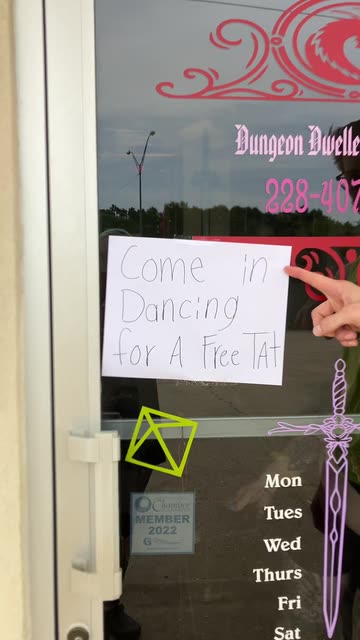 Dungeon Dwelle
228-407
Come in
Dancing
for A Free TAt
Chamber
MEMBER
2022
Mon
Tues
Wed
Thurs
Fri
Sat